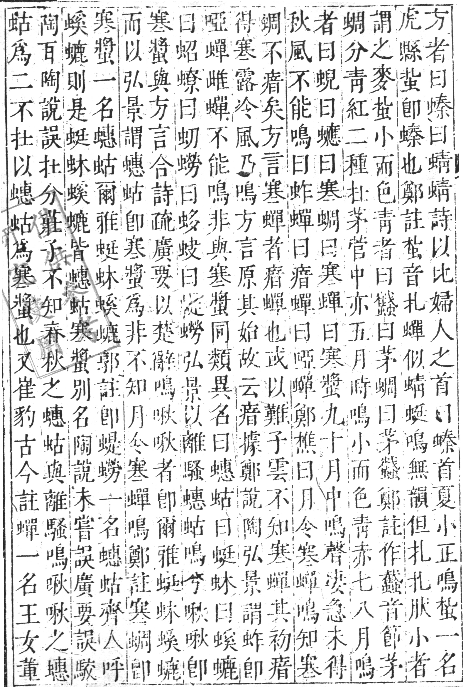 方者曰螓曰蜻蜻詩以比婦人之首曰螓首夏小正鳴蚻一名
虎縣蚻卽螓也鄭註蚻音扎蟬似蜻蜓鳴無韻但扎扎狀小者
謂之麥蚻小而色青者曰蠽曰茅蜩曰茅蠽鄭註作蠽音節茅
蜩分靑紅二種在茅菅中亦五月時鳴小而色靑赤七八月鳴
者曰蜺曰螿曰寒蜩曰寒蟬曰寒螿九十月中鳴聲凄急未得
秋風不能鳴曰蚱蟬曰瘖蟬曰啞蟬鄭樵曰月令寒蟬鳴知寒
蜩不瘖矣方言寒蟬者瘖蟬也或以難子雲不知寒蟬其初瘖
得寒露冷風乃鳴方言原其始故云瘖據鄭說陶弘景謂蚱卽
啞蟬雌蟬不能鳴非與寒螿同類異名曰蟪蛄曰蜓蚞曰螇螰
曰蛁蟟曰蛁蟧曰蛥蚗曰蝭蟧弘景以離騷蟪蛄鳴兮啾啾卽
寒螿與方言合詩疏廣要以楚辭鳴啾啾者卽爾雅蜓蚞螇螰
而以弘景謂蟪蛄卽寒螿爲非不知月令寒蟬鳴鄭註寒蜩卽
寒螿一名蟪蛄爾雅蜓蚞螇螰郭註卽蝭蟧一名蟪蛄齊人呼
螇螰則是蜓蚞螇螰皆蟪蛄寒螿別名陶說未嘗誤廣要誤駮
陶耳陶說誤在分莊子不知春秋之蟪蛄與離騷鳴啾啾之蟪
蛄爲二不在以蟪蛄爲寒螿也又崔豹古今註蟬一名王女董